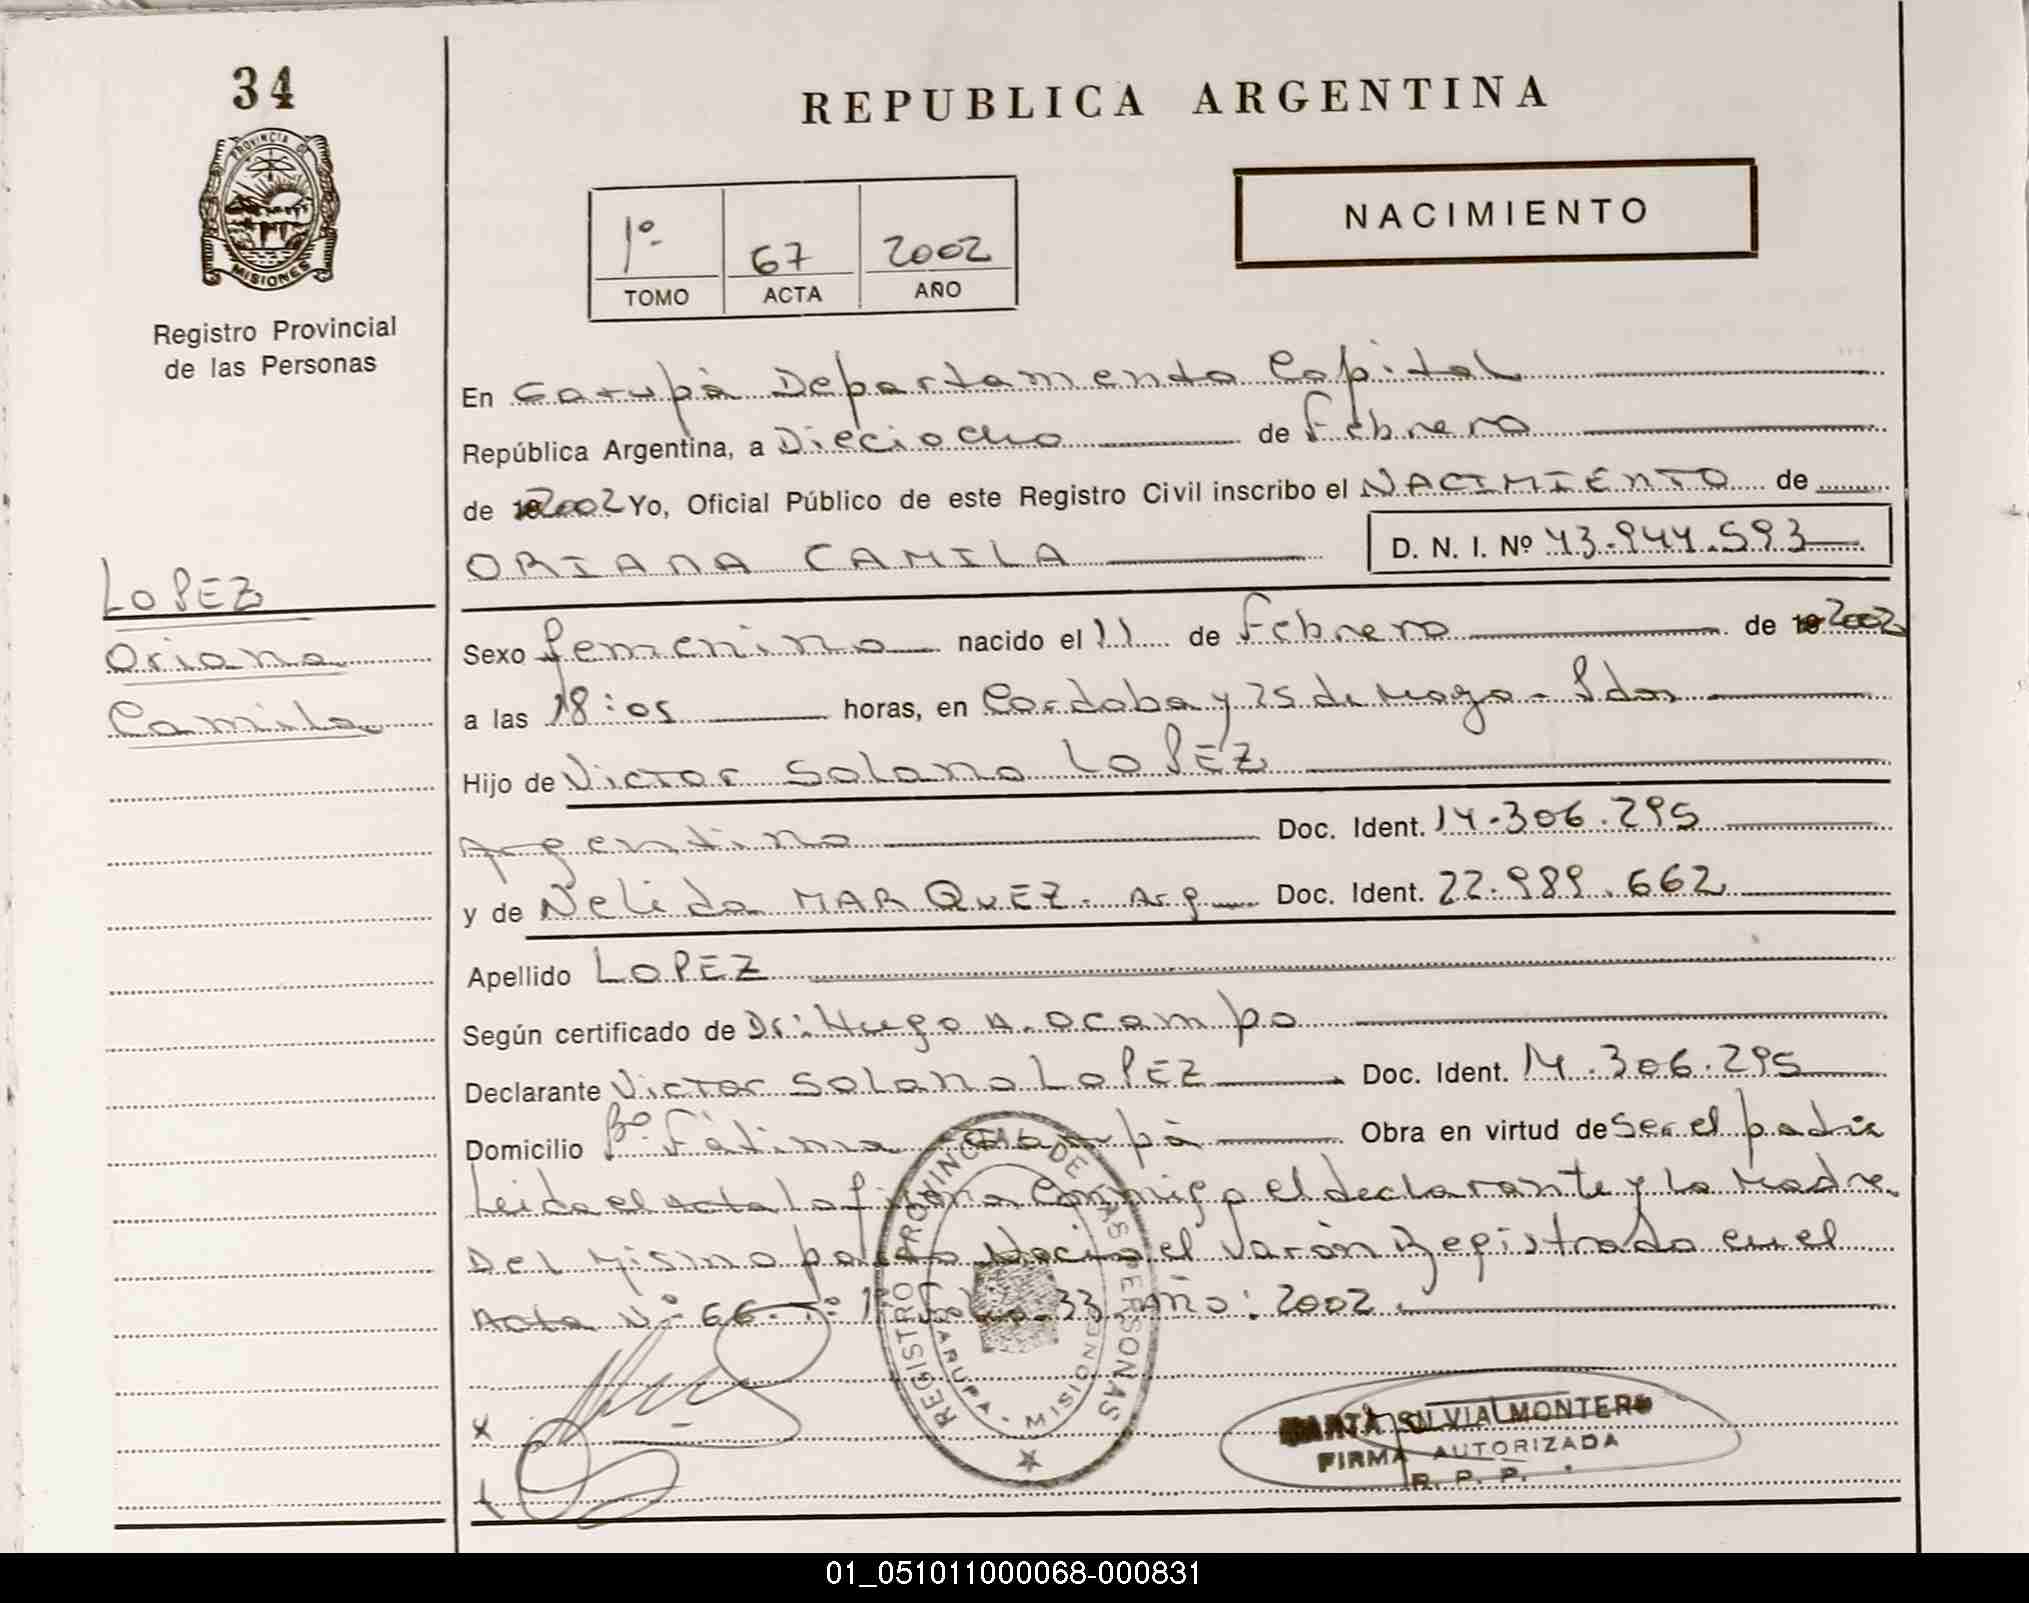 34
PROVINCIA DE
MISIONES
Registro Provincial
de las Personas
LOPEZ
Oriana
Camila
REPUBLICA ARGENTINA
1º 67 2002
TOMO ACTA AÑO
NACIMIENTO
En Garupà Departamento Capital
República Argentina, a Dieciocho de Febrero
de 2002 Yo, Oficial Público de este Registro Civil inscribo el NACIMIENTO de
ORIANA CAMILA D. N. I. Nº 43.944.593
Sexo femenino nacido el 11 de Febrero de 2002
a las 18:05 horas, en Cordoba y 25 de Mayo - Pdas
Hijo de Victor Solano LOPEZ
Argentino Doc. Ident. 14.306.295
y de Nelida MARQUEZ. Arg Doc. Ident. 22.989.662
Apellido LOPEZ
Según certificado de Dr: Hugo A. Ocampo
Declarante Victor Solano LOPEZ Doc. Ident. 14.306.295
Domicilio Bº Fàtima Garupà Obra en virtud de Ser el padre
Leida el Acta la firma Conmigo el declarante y la Madre.
Del Mismo parto Nacio el Varòn Registrado en el
Acta Nº 66. Tº 1º Folio 33 Año: 2002.
REGISTRO PROVINCIAL DE LAS PERSONAS
GARUPA - MISIONES
X
MARTA SILVIA MONTERO
FIRMA AUTORIZADA
R. P. P.
01_051011000068-000831